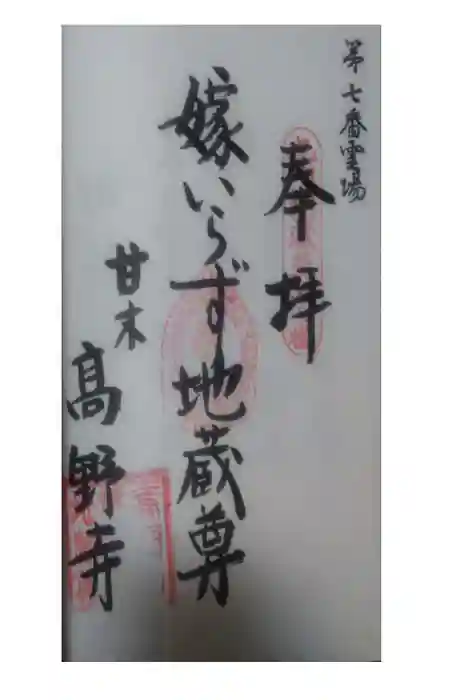 第七番霊場
奉拝
嫁いらず地蔵尊
甘木
髙野寺